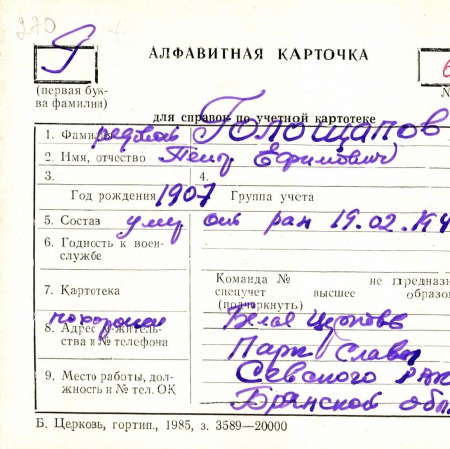 270
Г
АЛФАВИТНАЯ КАРТОЧКА
(первая бук-
ва фамилии)
для справок по учетной картотеке
1. Фамилия рядовой Голощапов
2. Имя, отчество Петр Ефимович
3. 4.
Год рождения 1907 Группа учета
5. Состав умер от ран 19.02.194
6. Годность к воен-
службе
Команда № не предназн
7. Картотека спецучет высшее образо
(подчеркнуть)
похоронен Белая Церковь
8. Адрес жительст-
ва и № телефона Парк Славы
9. Место работы, дол- Севского
жность и № тел. ОК Брянской обл
Б. Церковь, гортип., 1985, з. 3589—20000